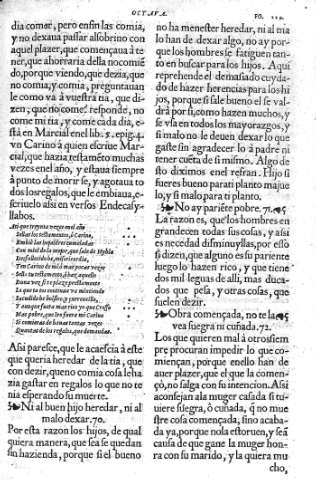 OCTAVA.
FO. 112.
dia comer, pero en fin las comia,
y no dexaua passar al sobrino con
aquel plazer, que començaua à te-
ner, que ahorraria della no comiẽ
do, porque viendo, que dezia, que
no comia, y comia, preguntauan
le como va à vuestra tia, que di-
zen, que no come, responde, no
come mi tia, y come cada dia, e-
stà en Marcial en el lib. 5. epig. 4.
vn Carino à quien escriue Mar-
cial, que hazia testamẽto muchas
vezes en el año, y estaua siempre
à punto de morirse, y agotaua to
dos los regalos, que le embiaua, e-
scriuelo assi en versos Endecasy-
llabos.
Assi que treynta vezes en el año
Sellas los testamentos, ò Carino,
Si comieras de hongos tantas vezes
Assi paresce, que le acaescia à este
que queria heredar de la tia, que
con dezir, que no comia cosa le ha
zia gastar en regalos lo que no te
nia esperando su muerte.
Ni al buen hijo heredar, ni al
malo dexar. 70.
Por esta razon los hijos, de qual
quiera manera, que sea se quedan
sin hazienda, porque si el bueno
no ha menester heredar, ni al ma
lo han de dexar algo, no ay por-
que los hombres se fatiguen tan-
to en buscar para los hijos. Aqui
reprehende el demasiado cuyda-
do de hazer herencias para los hi
jos, porque si sale bueno el se val-
drà por si, como hazen muchos, y
se vsa en todos los mayorazgos, y
si malo no le deuen dexar lo que
gaste sin agradecer lo à padre ni
tener cuẽta de si mismo. Algo de
sto diximos en el refran. Hijo si
fueres bueno para ti planto majue
lo, y si malo para ti planto.
No ay pariẽte pobre. 71.
La razon es, que los hombres en
grandecen todas sus cosas, y assi
es necedad disminuyllas, por esso
si dizen, que alguno es su pariente
luego lo hazen rico, y que tiene
dos mil leguas de alli, mas duca-
dos que pesa, y otras cosas, que
suelen dezir.
Obra començada, no te la
vea suegra ni cuñada. 72.
Los que quieren mal à otros siem
pre procuran impedir lo que co-
miençan, porque en ello han de
auer plazer, que el que la comen-
çò, no salga con su intencion. Assi
aconsejan a la muger casada si tu-
uiere suegra, ò cuñada, q̃ no mue
stre cosa començada, sino acaba-
da, porque no la estoruen, y seã
causa de que gane la muger hon-
ra con su marido, y la quiera mu
cho,